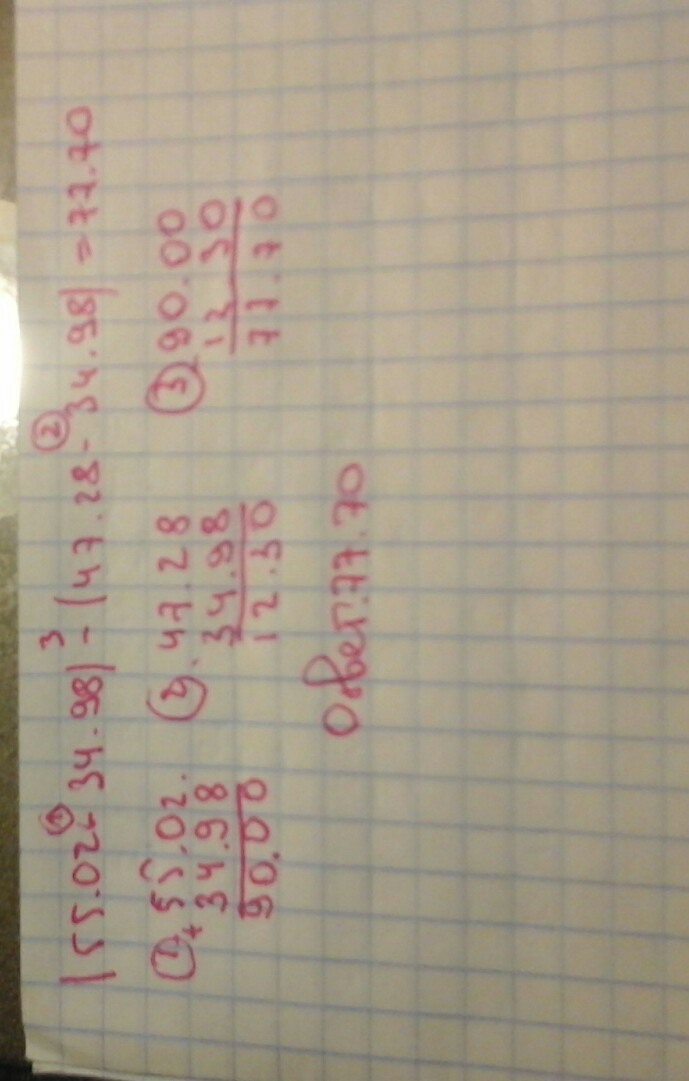 (55.02+34.98)-(47.28-34.98)=77.70
① + 55.02. ② - 47.28 ③ - 90.00
34.98 34.98 12 30
90.00 12.30 77.70
Ответ:77.70